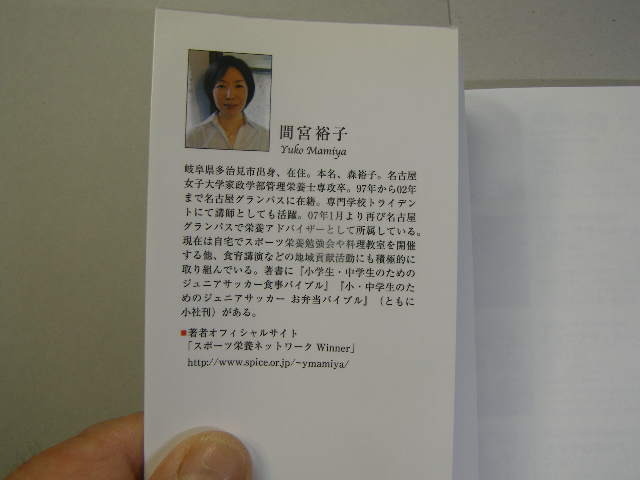 間宮裕子
Yuko Mamiya
岐阜県多治見市出身、在住。本名、森裕子。名古屋
女子大学家政学部管理栄養士専攻卒。97年から02年
まで名古屋グランパスに在籍。専門学校トライデン
トにて講師としても活躍。07年1月より再び名古屋
グランパスで栄養アドバイザーとして所属している。
現在は自宅でスポーツ栄養勉強会や料理教室を開催
する他、食育講演などの地域貢献活動にも積極的に
取り組んでいる。著書に『小学生・中学生のための
ジュニアサッカー食事バイブル』『小・中学生のた
めのジュニアサッカー お弁当バイブル』(ともに
小社刊)がある。
■著者オフィシャルサイト
「スポーツ栄養ネットワーク Winner」
http://www.spice.or.jp/~ymamiya/